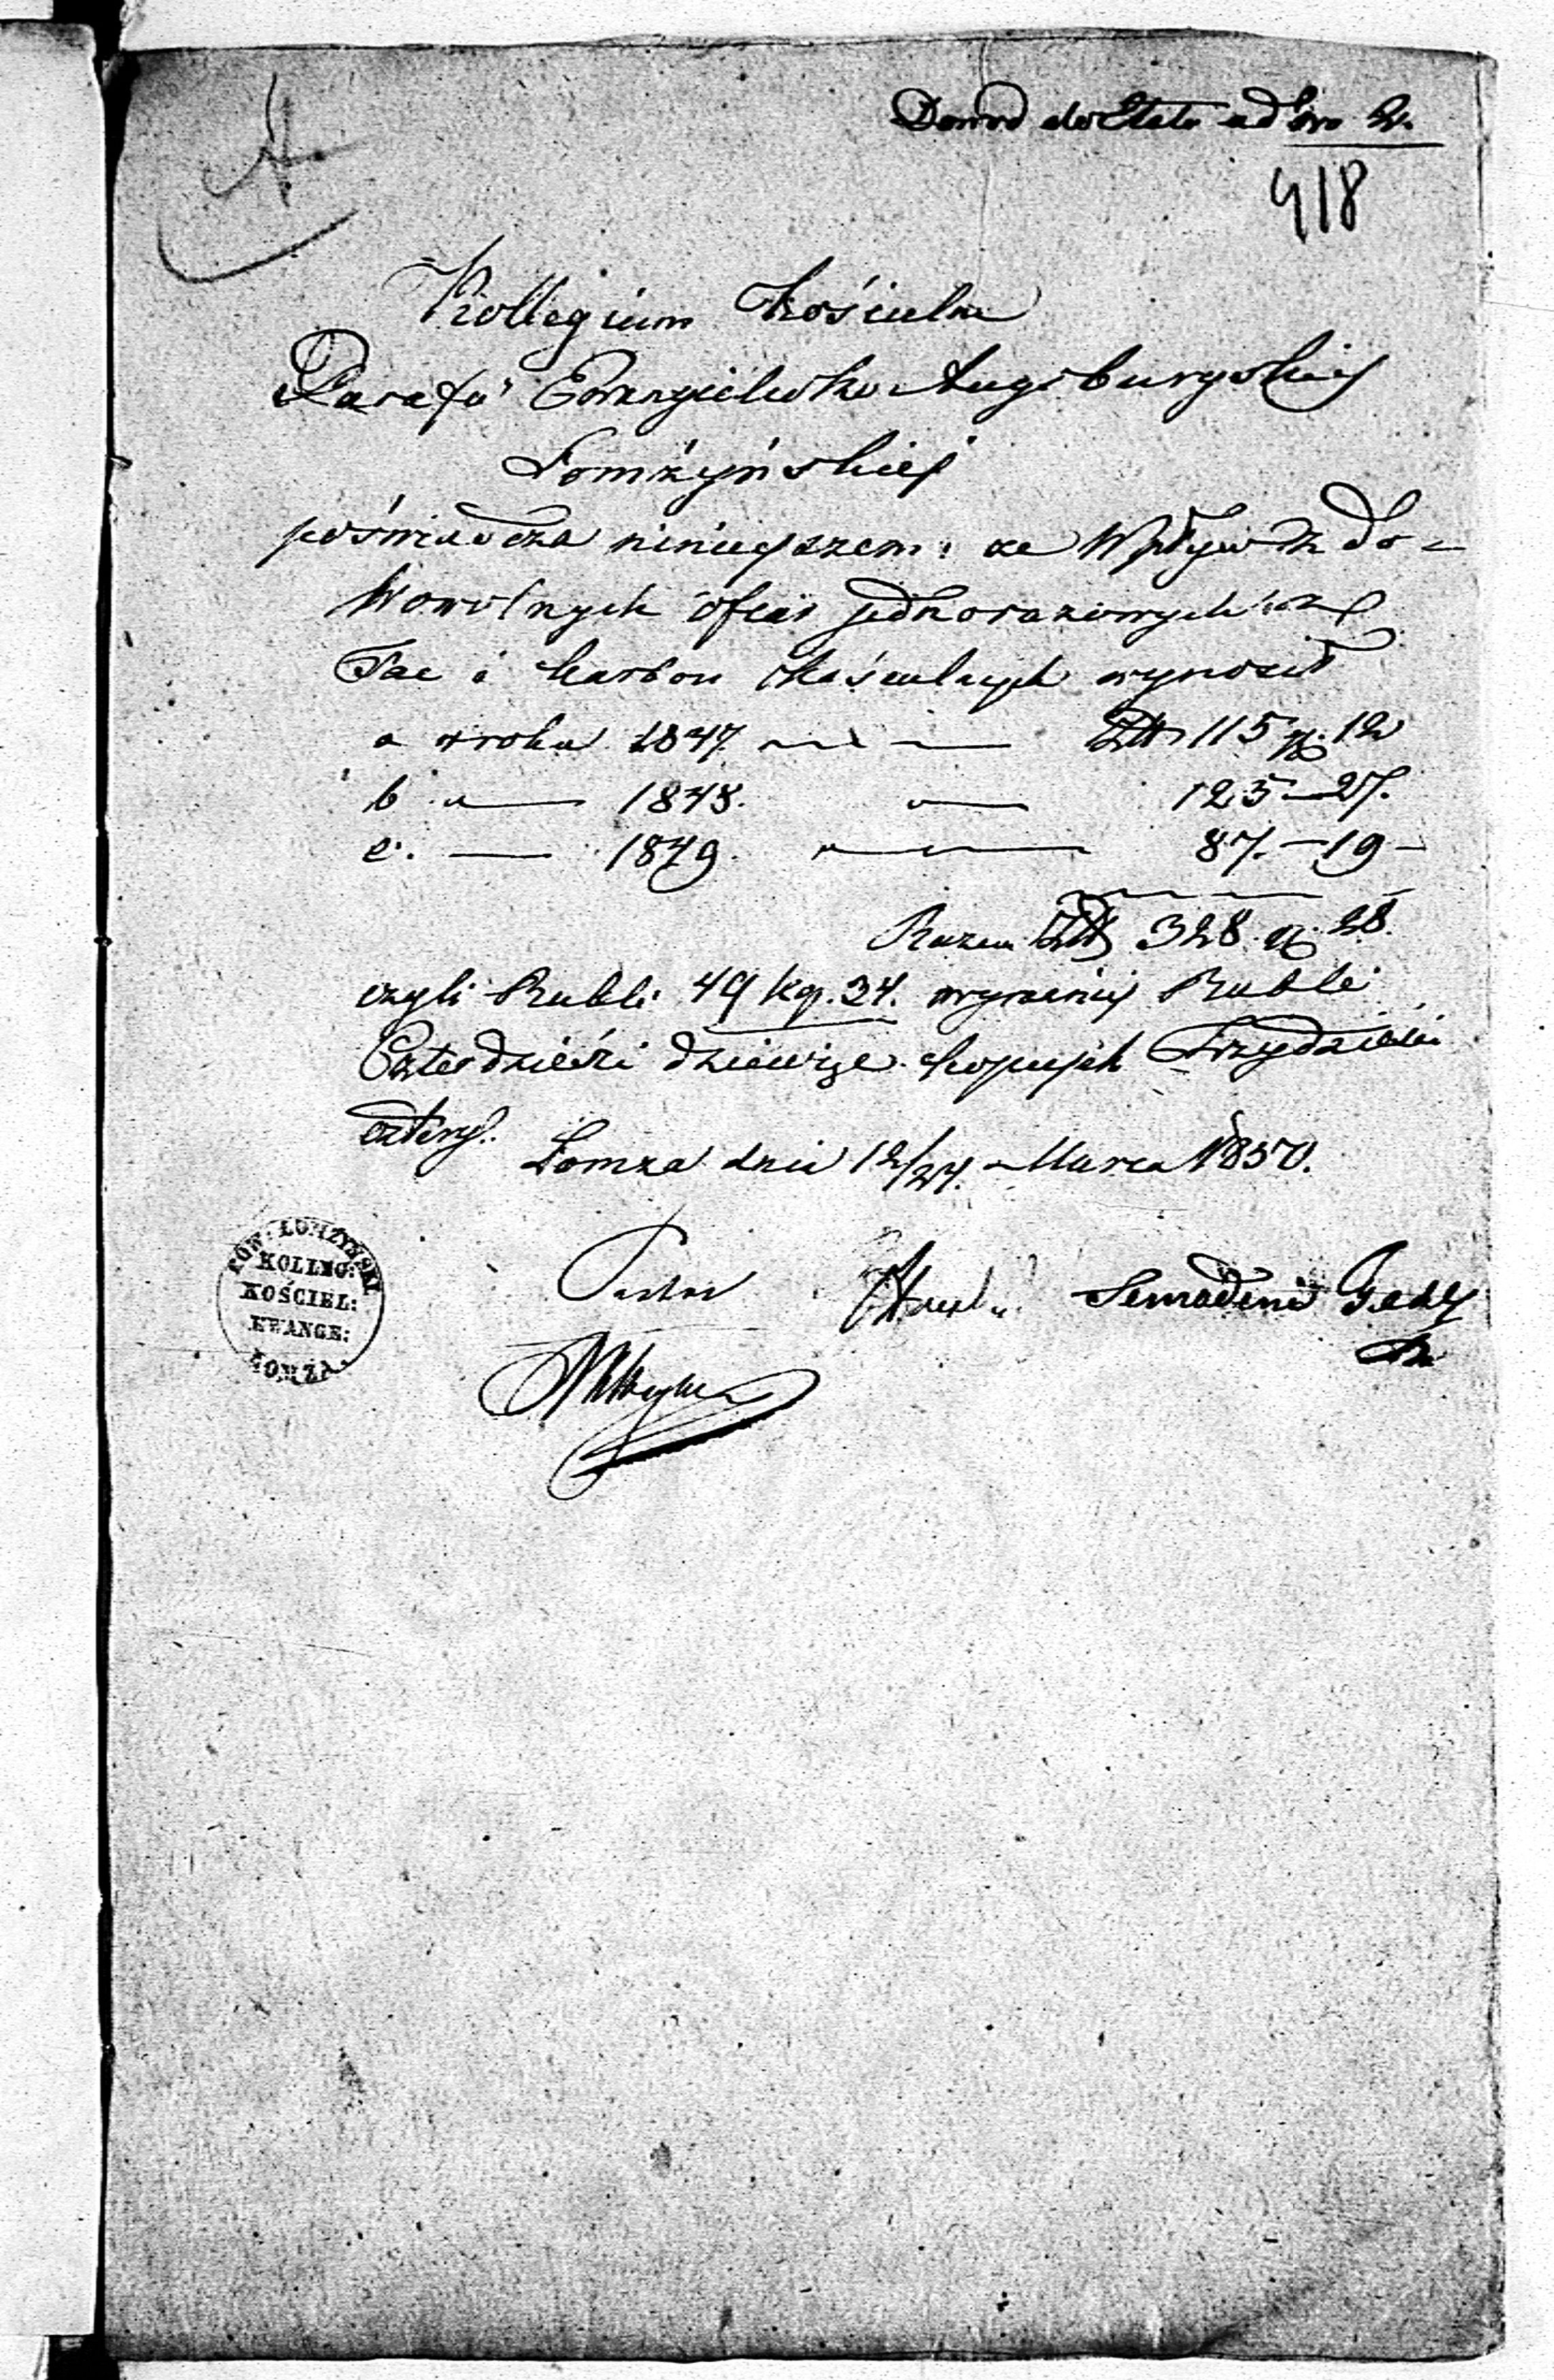 Dowód do Etatu ad Nro 2.
418
Kollegium Kościelne
Parafii Ewangielicko Augsburgskiej
Łomżyńskiej
poświadcza niniejszem: że Wpływ z do-
wowolnych ofiar jednorazowych
Tac i karbon Kościelnych wynosił
a w roku 1847. Złt 115 gr. 12
b. 1848. 125 — 27.
c. 1849. 87. — 19 —
Razem Złt 328. gr. 28.
czyli Rubli 49 kop. 34. wyraźniej Rubli
Czterdzieści dziewięć kopiejek Trzydzieści
cztery.
Łomża dnia 12/24. Marca 1850.
POW: ŁOMŻYŃSKI
KOLLEG:
KOŚCIEL:
EWANGE:
ŁOMŻA
Pastor
Semadeni